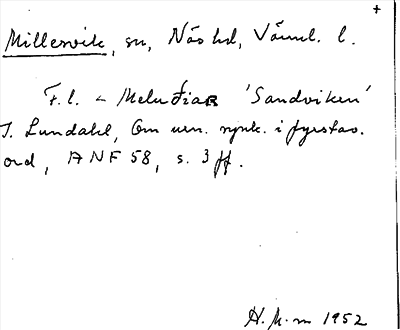 +
Millesvik, sn, Näs hd, Värml. l.
F. l. < Meluðiar 'Sandviken'
I. Lundahl, Om urn. synk. i fyrstav.
ord, ANF 58, s. 3 ff.
H. K-m 1952